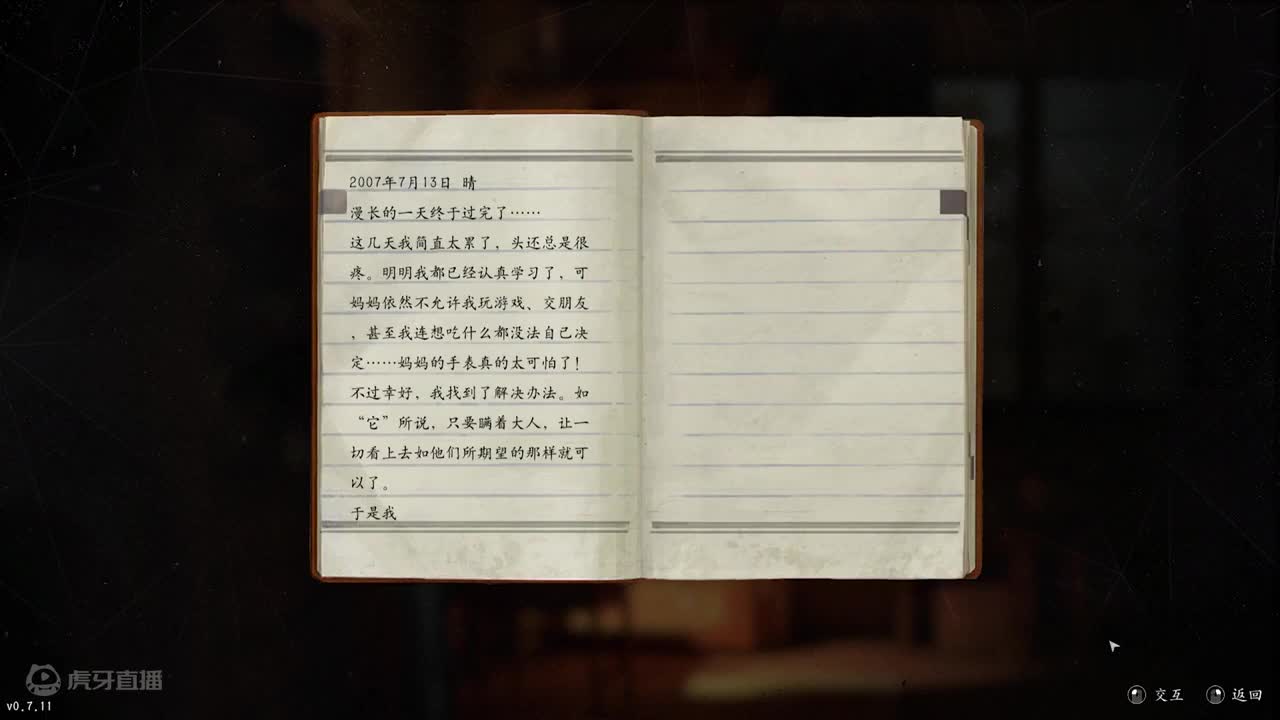 2007年7月13日 晴
漫长的一天终于过完了……
这几天我简直太累了，头还总是很
疼。明明我都已经认真学习了，可
妈妈依然不允许我玩游戏、交朋友
，甚至我连想吃什么都没法自己决
定……妈妈的手表真的太可怕了！
不过幸好，我找到了解决办法。如
“它”所说，只要瞒着大人，让一
切看上去如他们所期望的那样就可
以了。
于是我
虎牙直播
v0.7.11
交互 返回